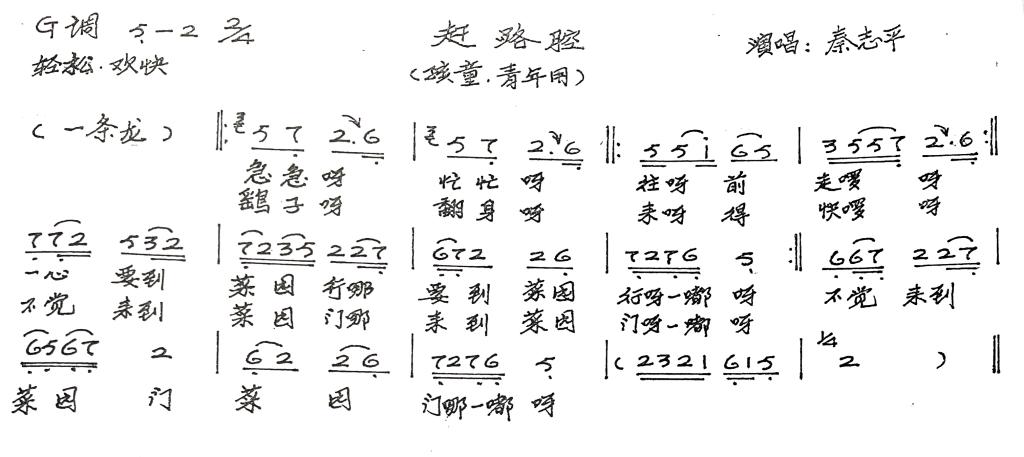 G调 5—2 2/4 赶路腔 演唱：秦志平
轻松.欢快 （孩童.青年用）
（一条龙） ‖: 5 7 2.6 | 5 7 2.6 ‖: 5 5 i 6 5 | 3 5 5 7 2.6 :‖
急急呀 忙忙呀 往呀 前 走啰 呀
鹞子呀 翻身呀 来呀 得 快啰 呀
7 7 2 5 3 2 | 7 2 3 5 2 2 7 | 6 7 2 2 6 | 7 2 7 6 5 :‖ 6 6 7 2 2 7 |
一心 要到 菜园 行哪 要到 菜园 行呀一嘟 呀 不觉 来到
不觉 来到 菜园 门哪 来到 菜园 门呀一嘟 呀
6 5 6 7 2 | 6 2 2 6 | 7 2 7 6 5 | （2 3 2 1 6 1 5 | 1/4 2 ） ‖
菜园 门 菜 园 门哪一嘟 呀